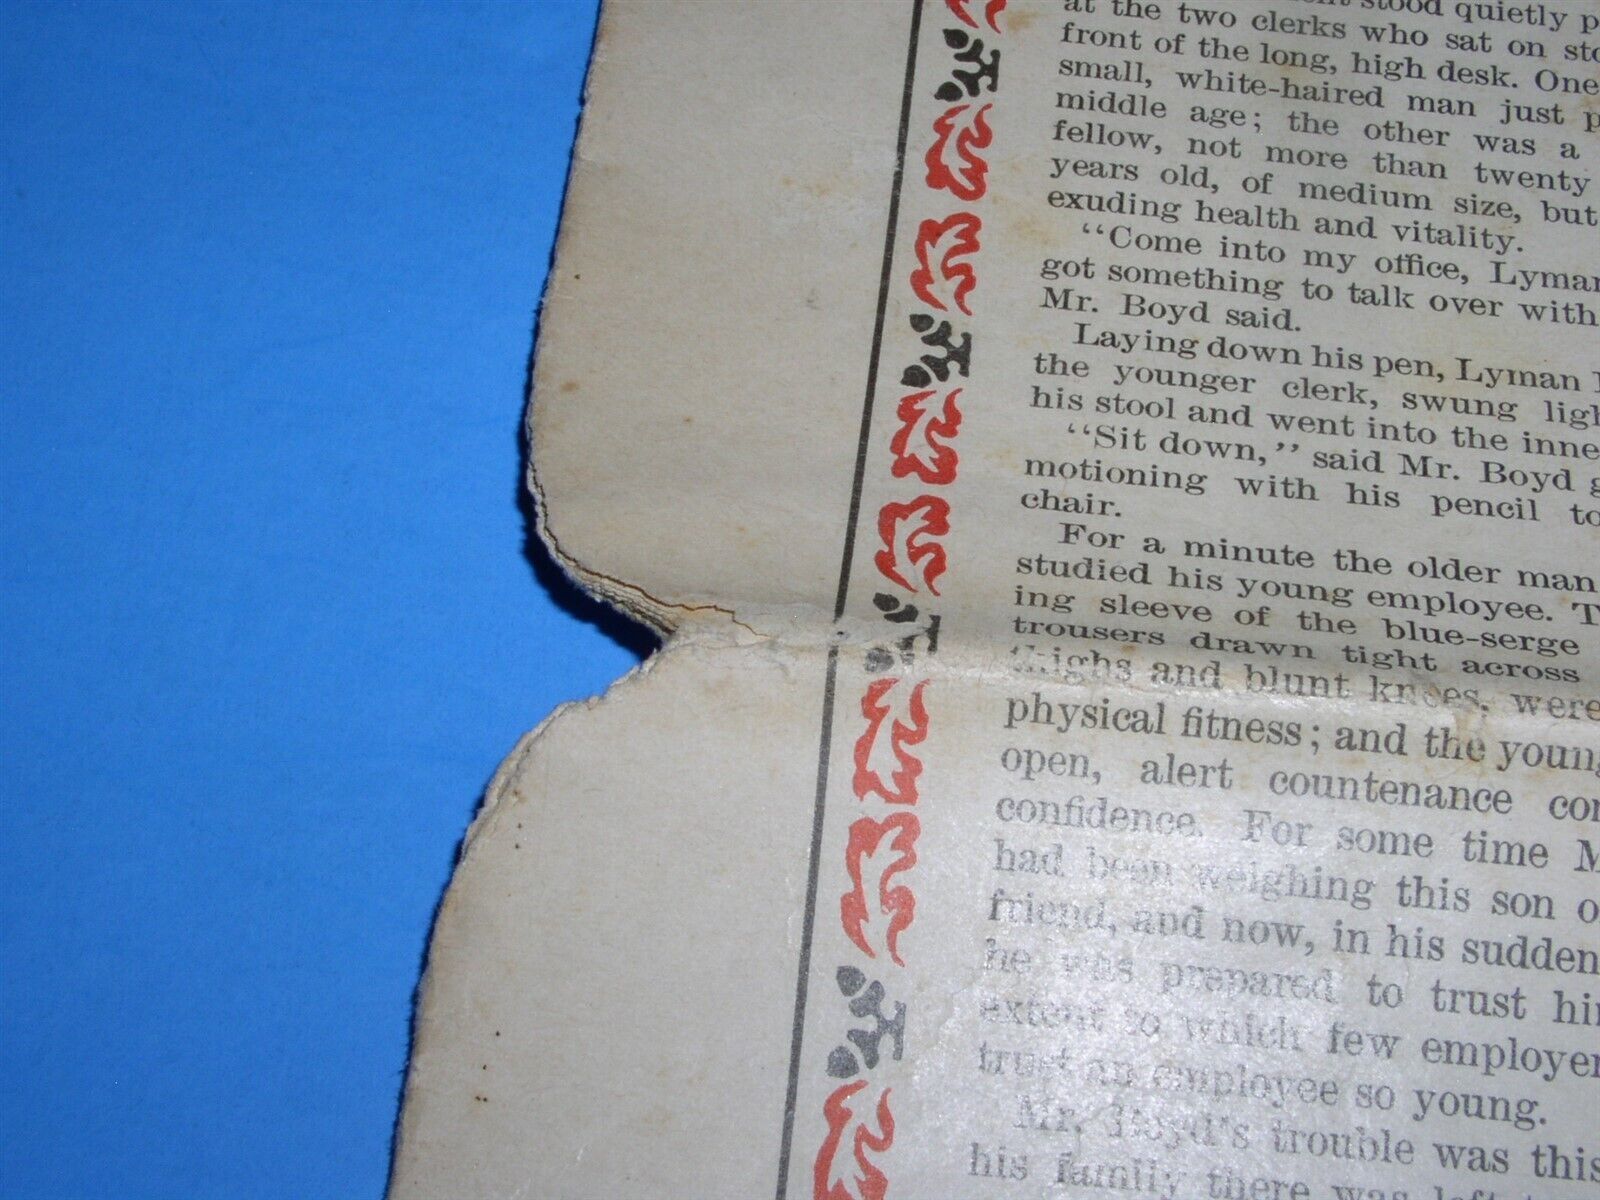 stood quietly
at the two clerks who sat on
front of the long, high desk. One
small, white-haired man just
middle age; the other was a
fellow, not more than twenty
years old, of medium size, but
exuding health and vitality.
“Come into my office, Lyman
got something to talk over with
Mr. Boyd said.
Laying down his pen, Lyman
the younger clerk, swung
his stool and went into the
“Sit down,” said Mr. Boyd
motioning with his pencil to
chair.
For a minute the older man
studied his young employee.
ing sleeve of the blue-serge
trousers drawn tight across
thighs and blunt knees, were
physical fitness; and the
open, alert countenance
confidence. For some time
had been weighing this son
friend, and now, in his sudden
he was prepared to trust
extent to which few
trust an employee so young.
Mr. Boyd's trouble was this
his family there was